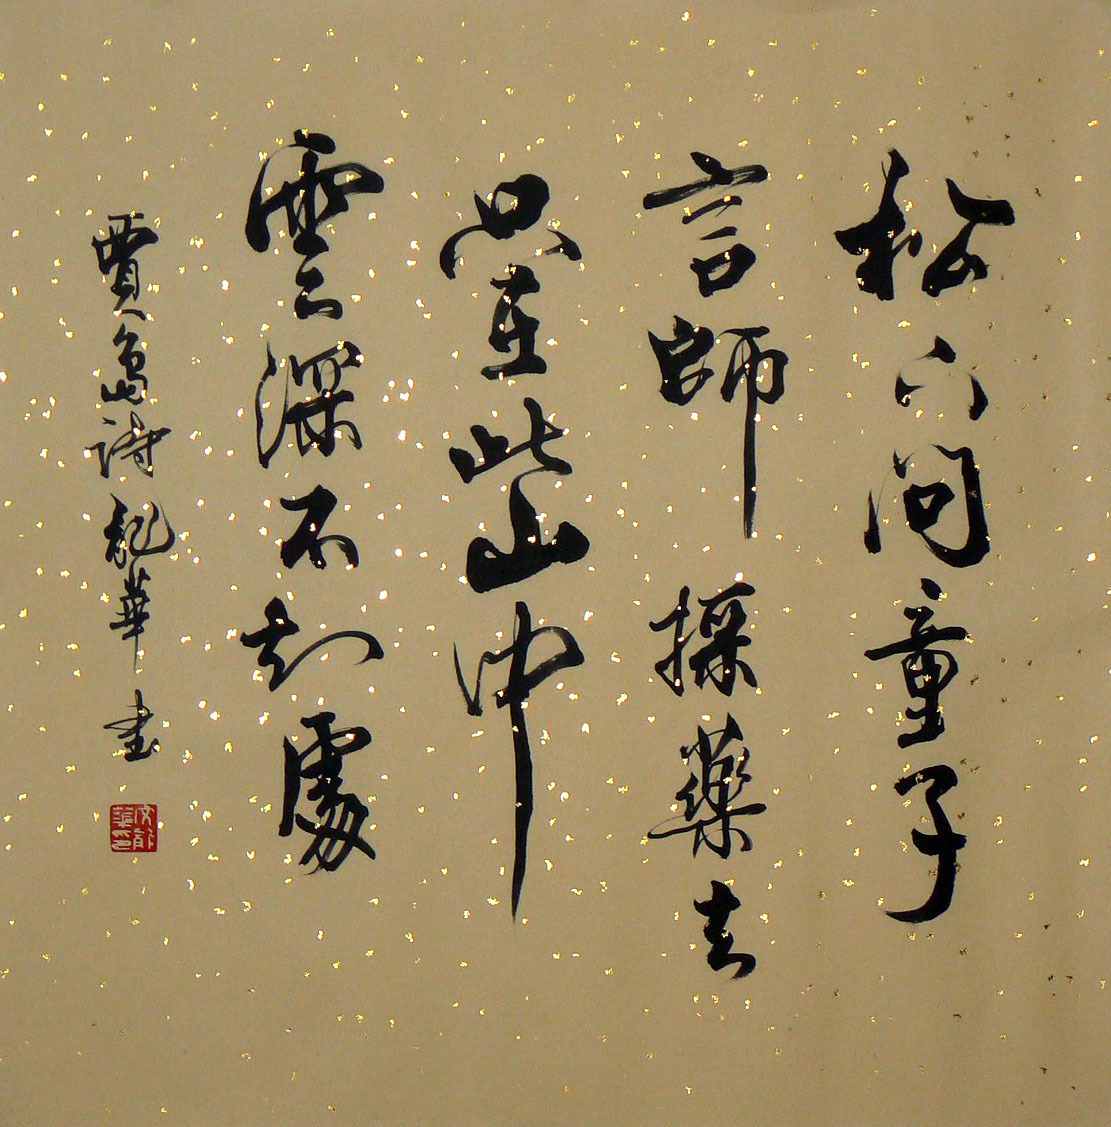 松下问童子
言師採藥去
只在此山中
雲深不知處
賈島詩 龍華书